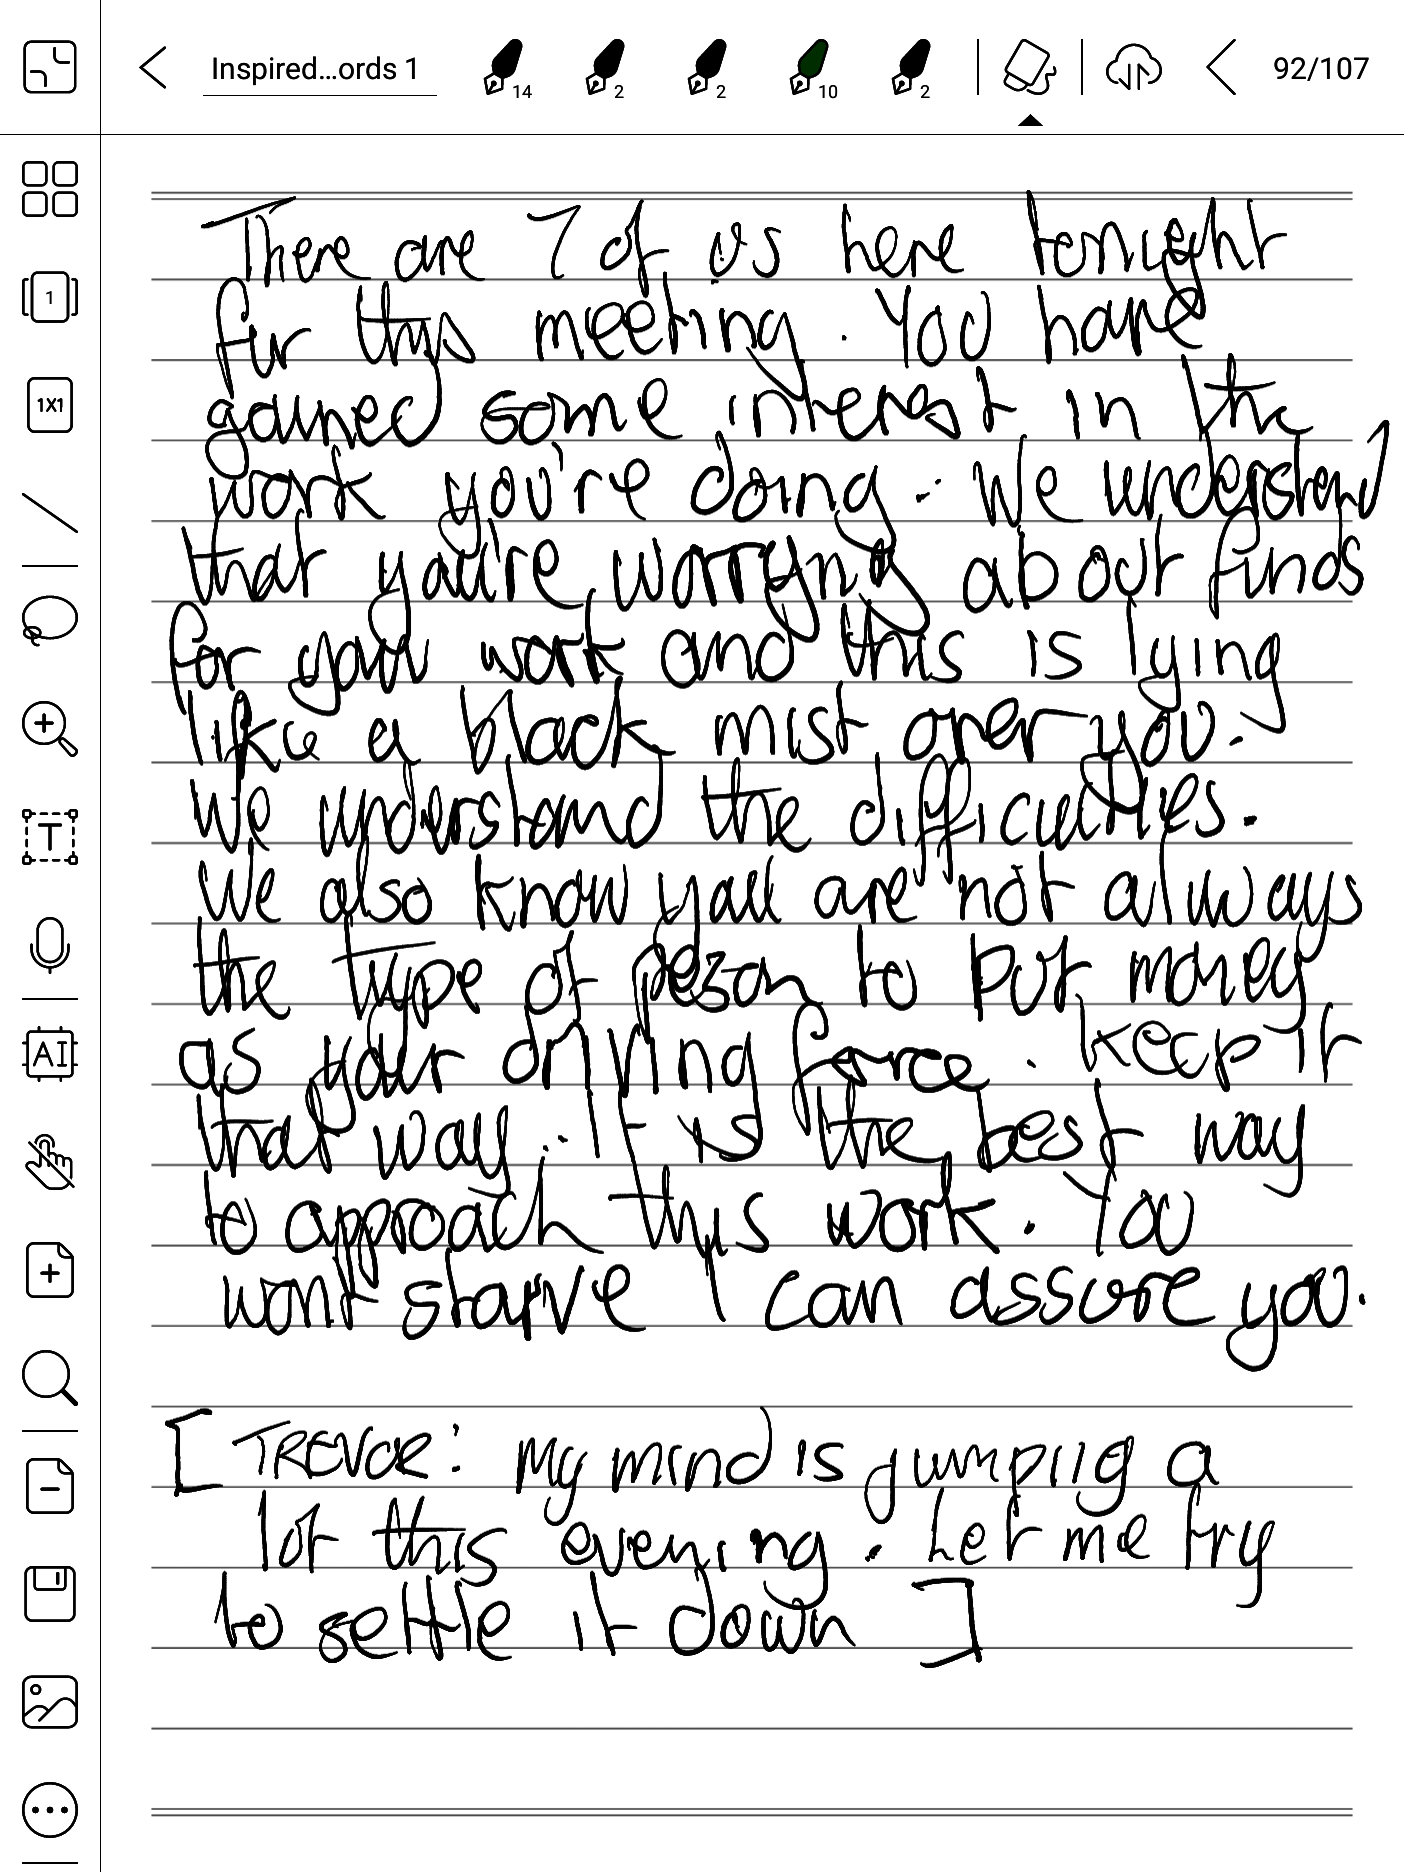 Inspired...ords 1
14
2
2
10
2
92/107
1
1X1
T
AI
There are 7 of us here tonight
for this meeting. You have
gained some interest in the
work you're doing. We understand
that you're worrying about funds
for your work and this is lying
like a black mist over you.
We understand the difficulties.
We also know you are not always
the type of person to put money
as your driving force. Keep it
that way. It is the best way
to approach this work. You
wont starve I can assure you.
[TREVOR: My mind is jumping a
lot this evening. Let me try
to settle it down]